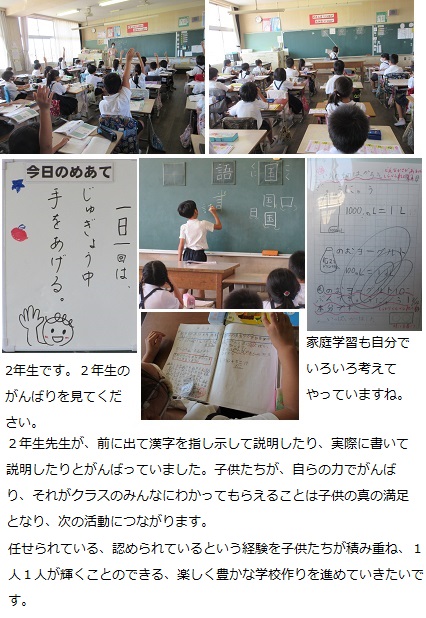 今日のめあて
一日一回は、
じゅぎょう中
手をあげる。
語
国
言
国
日
国
1000mL=1L
家庭学習も自分で
いろいろ考えて
やっていますね。
2年生です。２年生の
がんばりを見てくだ
さい。
２年生先生が、前に出て漢字を指し示して説明したり、実際に書いて
説明したりとがんばっていました。子供たちが、自らの力でがんば
り、それがクラスのみんなにわかってもらえることは子供の真の満足
となり、次の活動につながります。
任せられている、認められているという経験を子供たちが積み重ね、１
人１人が輝くことのできる、楽しく豊かな学校作りを進めていきたいで
す。